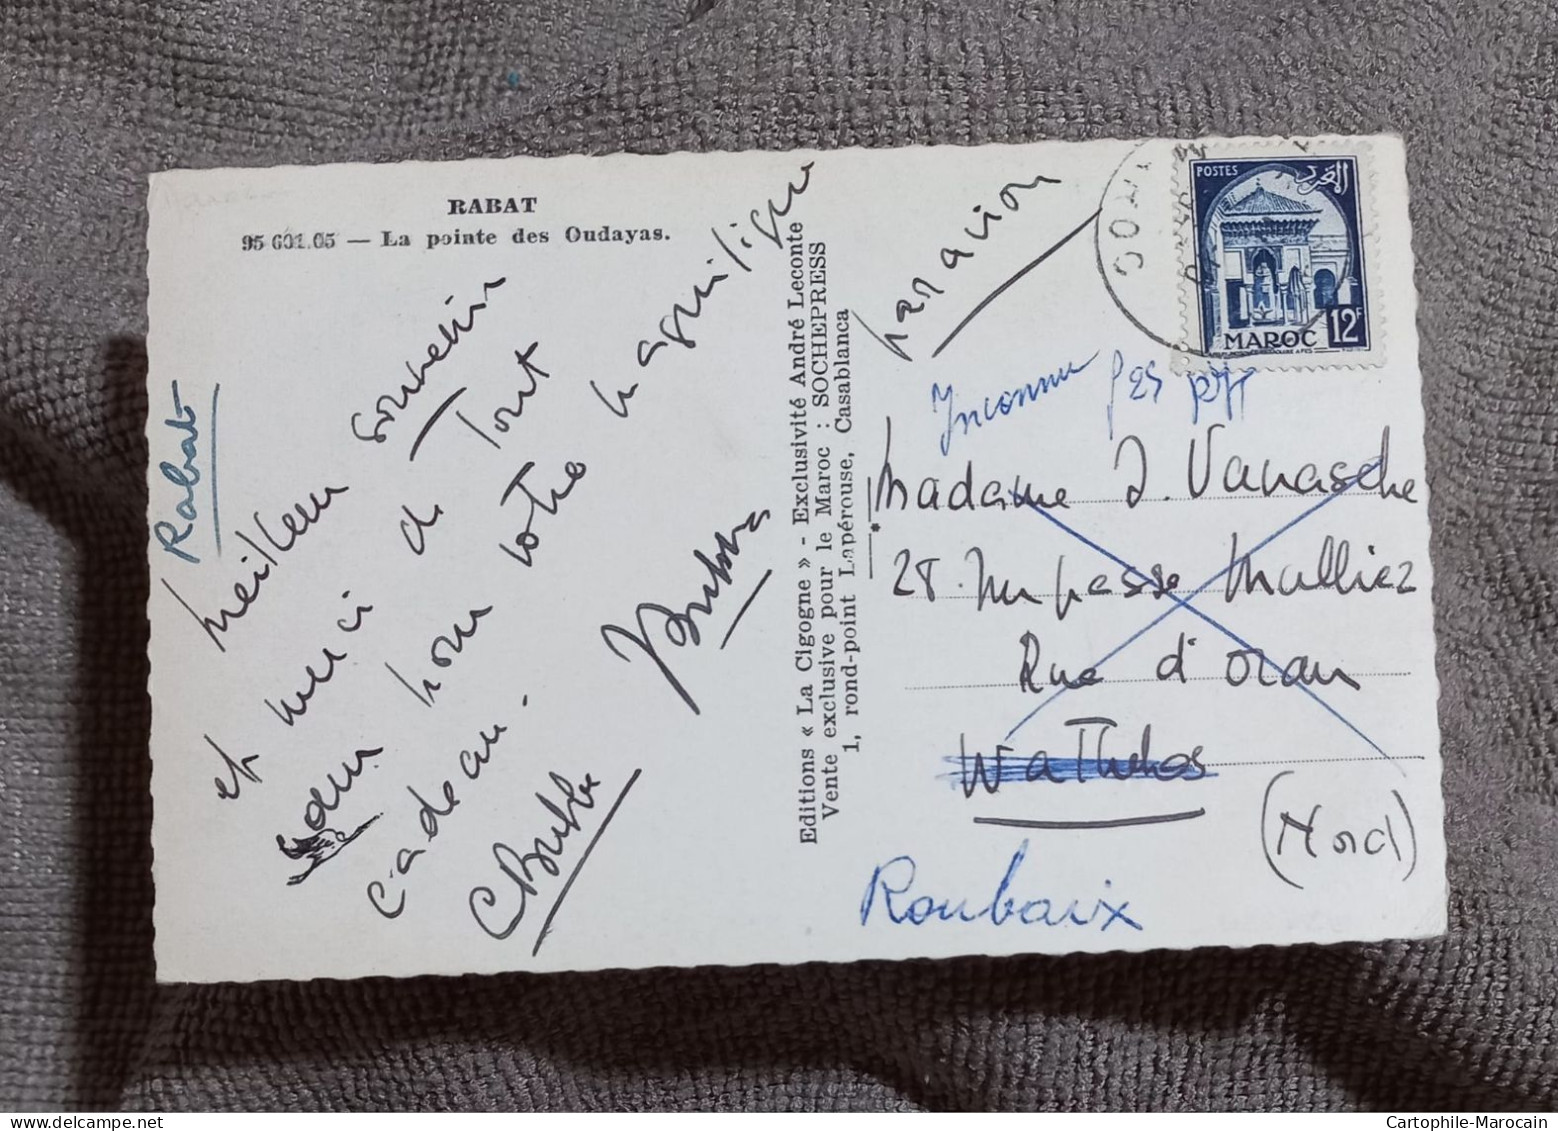 RABAT
95 601.05 — La pointe des Oudayas.
Rabat
Meilleur souvenir
et merci de Tout
cœur pour votre magnifique
cadeau.
Editions « La Cigogne » - Exclusivité André Leconte
Vente exclusive pour le Maroc : SOCHEPRESS
1, rond-point Lapérouse, Casablanca
par avion
POSTES
المغرب
MAROC
12F
Inconnu
Madame J. Vanasche
28 Impasse Malliez
Rue d'Oran
Wattrelos
(Nord)
Roubaix
Cartophile-Marocain